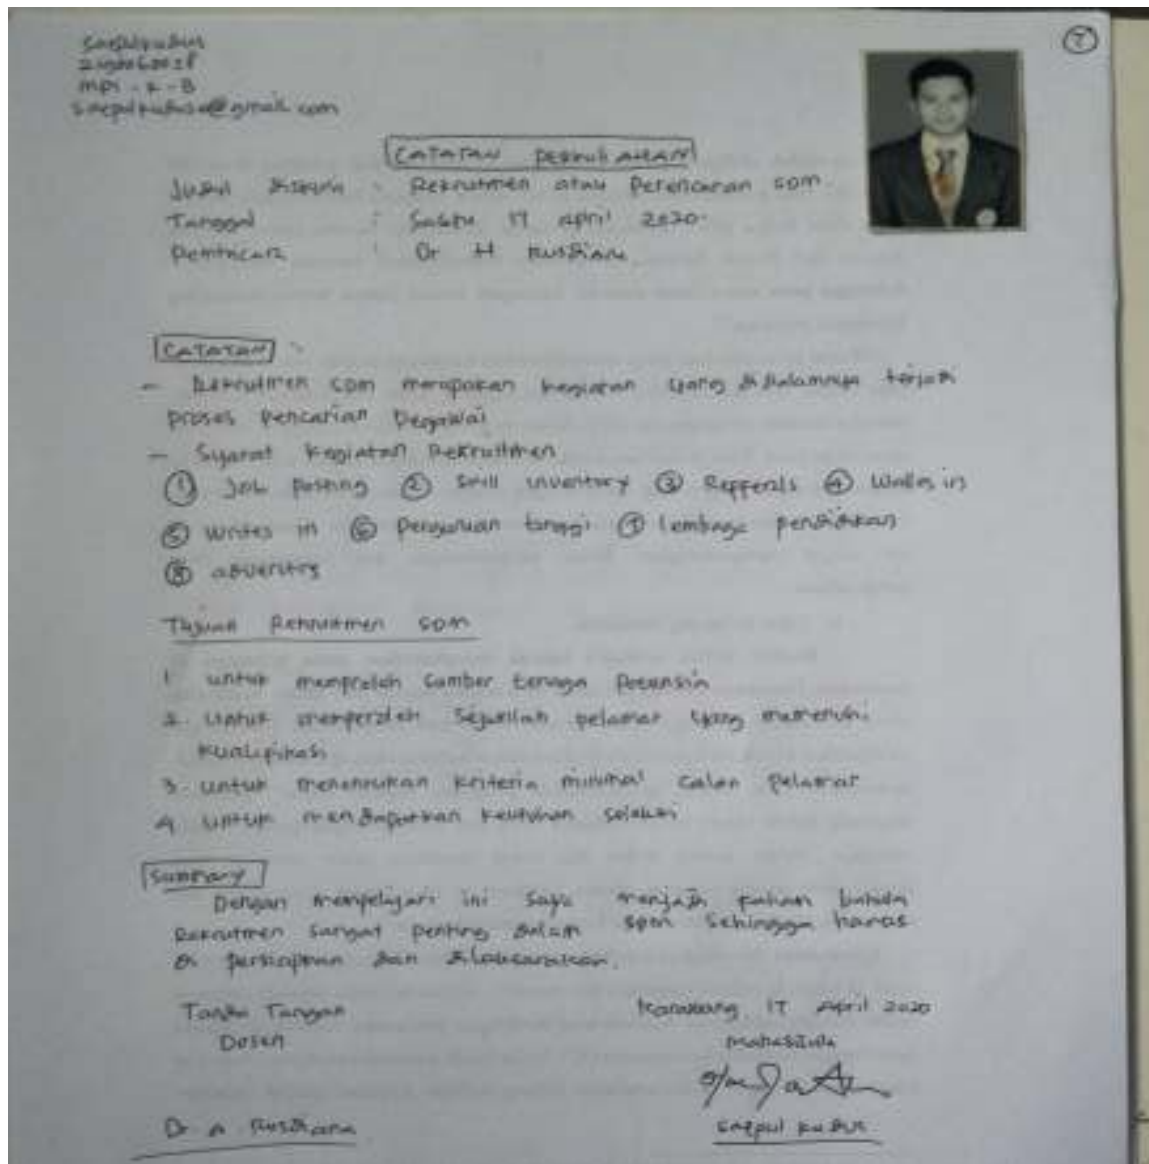 7
Saepul kudus
MPI - 4 - B
saepulkudus@gmail.com
CATATAN PERKULIAHAN
Judul diskusi : Rekrutmen atau Perencanan SDM.
Tanggal : Sabtu 17 April 2020
Pembicara : Dr H Rusdiana
CATATAN :
- Rekrutmen SDM merupakan kegiatan yang didalamnya terjadi
proses pencarian Pegawai
- Syarat kegiatan Rekruitmen
① Job posting ② Skill inventory ③ Refferals ④ Walks in
⑤ writes in ⑥ perguruan tinggi ⑦ lembaga pendidikan
⑧
Tujuan Rekrutmen SDM
1 untuk memproleh sumber tenaga Potensia
2. Untuk memperoleh Sejumlah pelamar yang memenuhi
kualifikasi
3. untuk menentukan kriteria minimal calon pelamar
4 untuk mendapatkan seleksi
Summary
Dengan mempelajari ini saya menjadi paham bahwa
Rekrutmen sangat penting dalam SDM sehingga harus
di persiapkan dan dilaksanakan.
Tanda Tangan
Dosen
Karawang 17 April 2020
Mahasiswa
Dr A Rusdiana
Saepul kudus